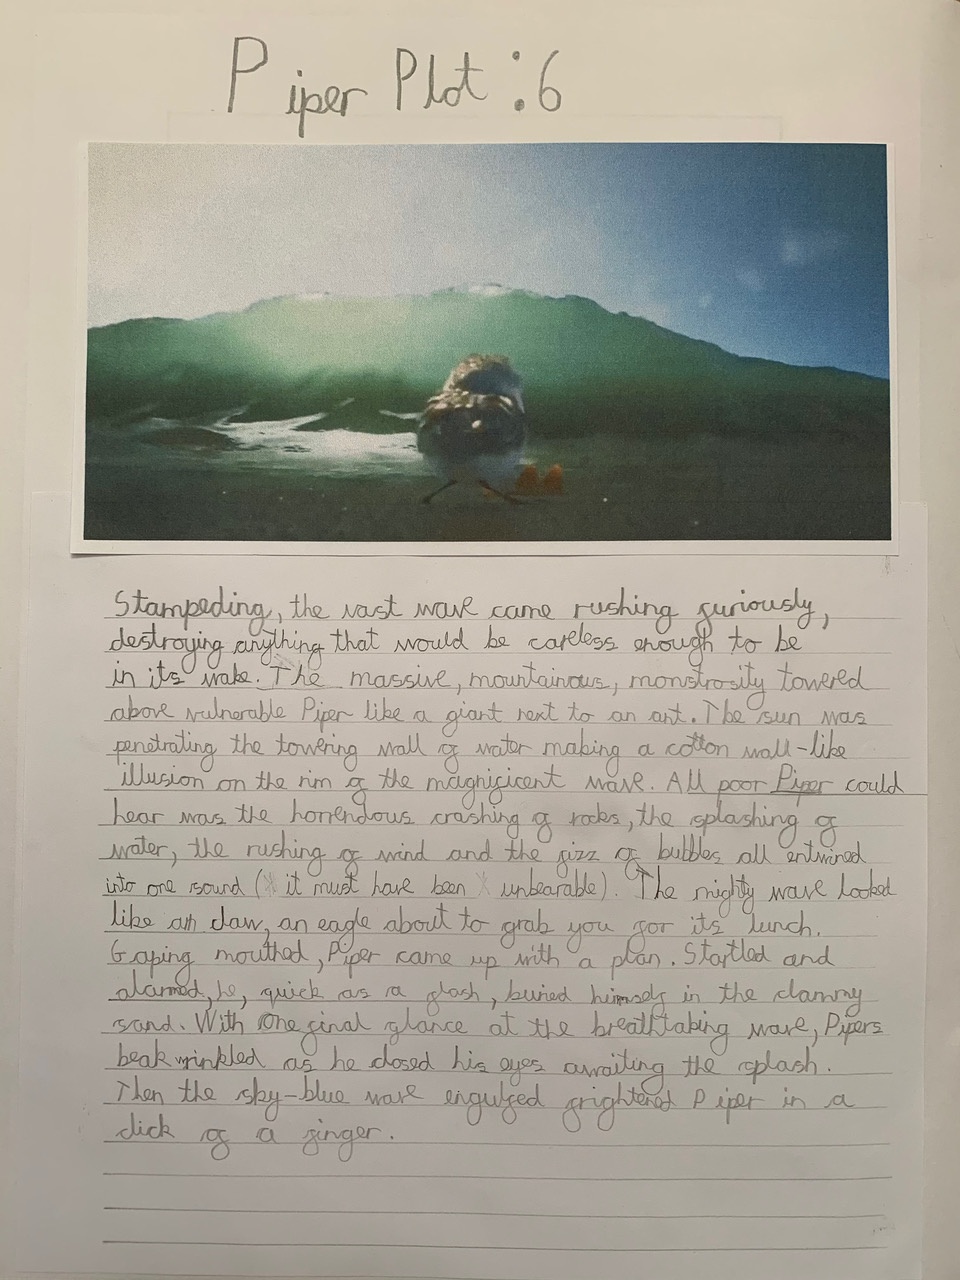 Piper Plot:6
Stampeding, the vast wave came rushing furiously,
destroying anything that would be careless enough to be
in its wake. The massive, mountainous, monstrosity towered
above vulnerable Piper like a giant next to an ant. The sun was
penetrating the towering wall of water making a cotton wall-like
illusion on the rim of the magnificent wave. All poor Piper could
hear was the horrendous crashing of rocks, the splashing of
water, the rushing of wind and the fizz of bubbles all entwined
into one sound (it must have been unbearable). The mighty wave looked
like an claw, an eagle about to grab you for its lunch.
Gaping mouthed, Piper came up with a plan. Startled and
alarmed, he, quick as a flash, buried himself in the clammy
sand. With one final glance at the breathtaking wave, Pipers
beak wrinkled as he closed his eyes awaiting the splash.
Then the sky-blue wave engulfed frightened Piper in a
click of a finger.